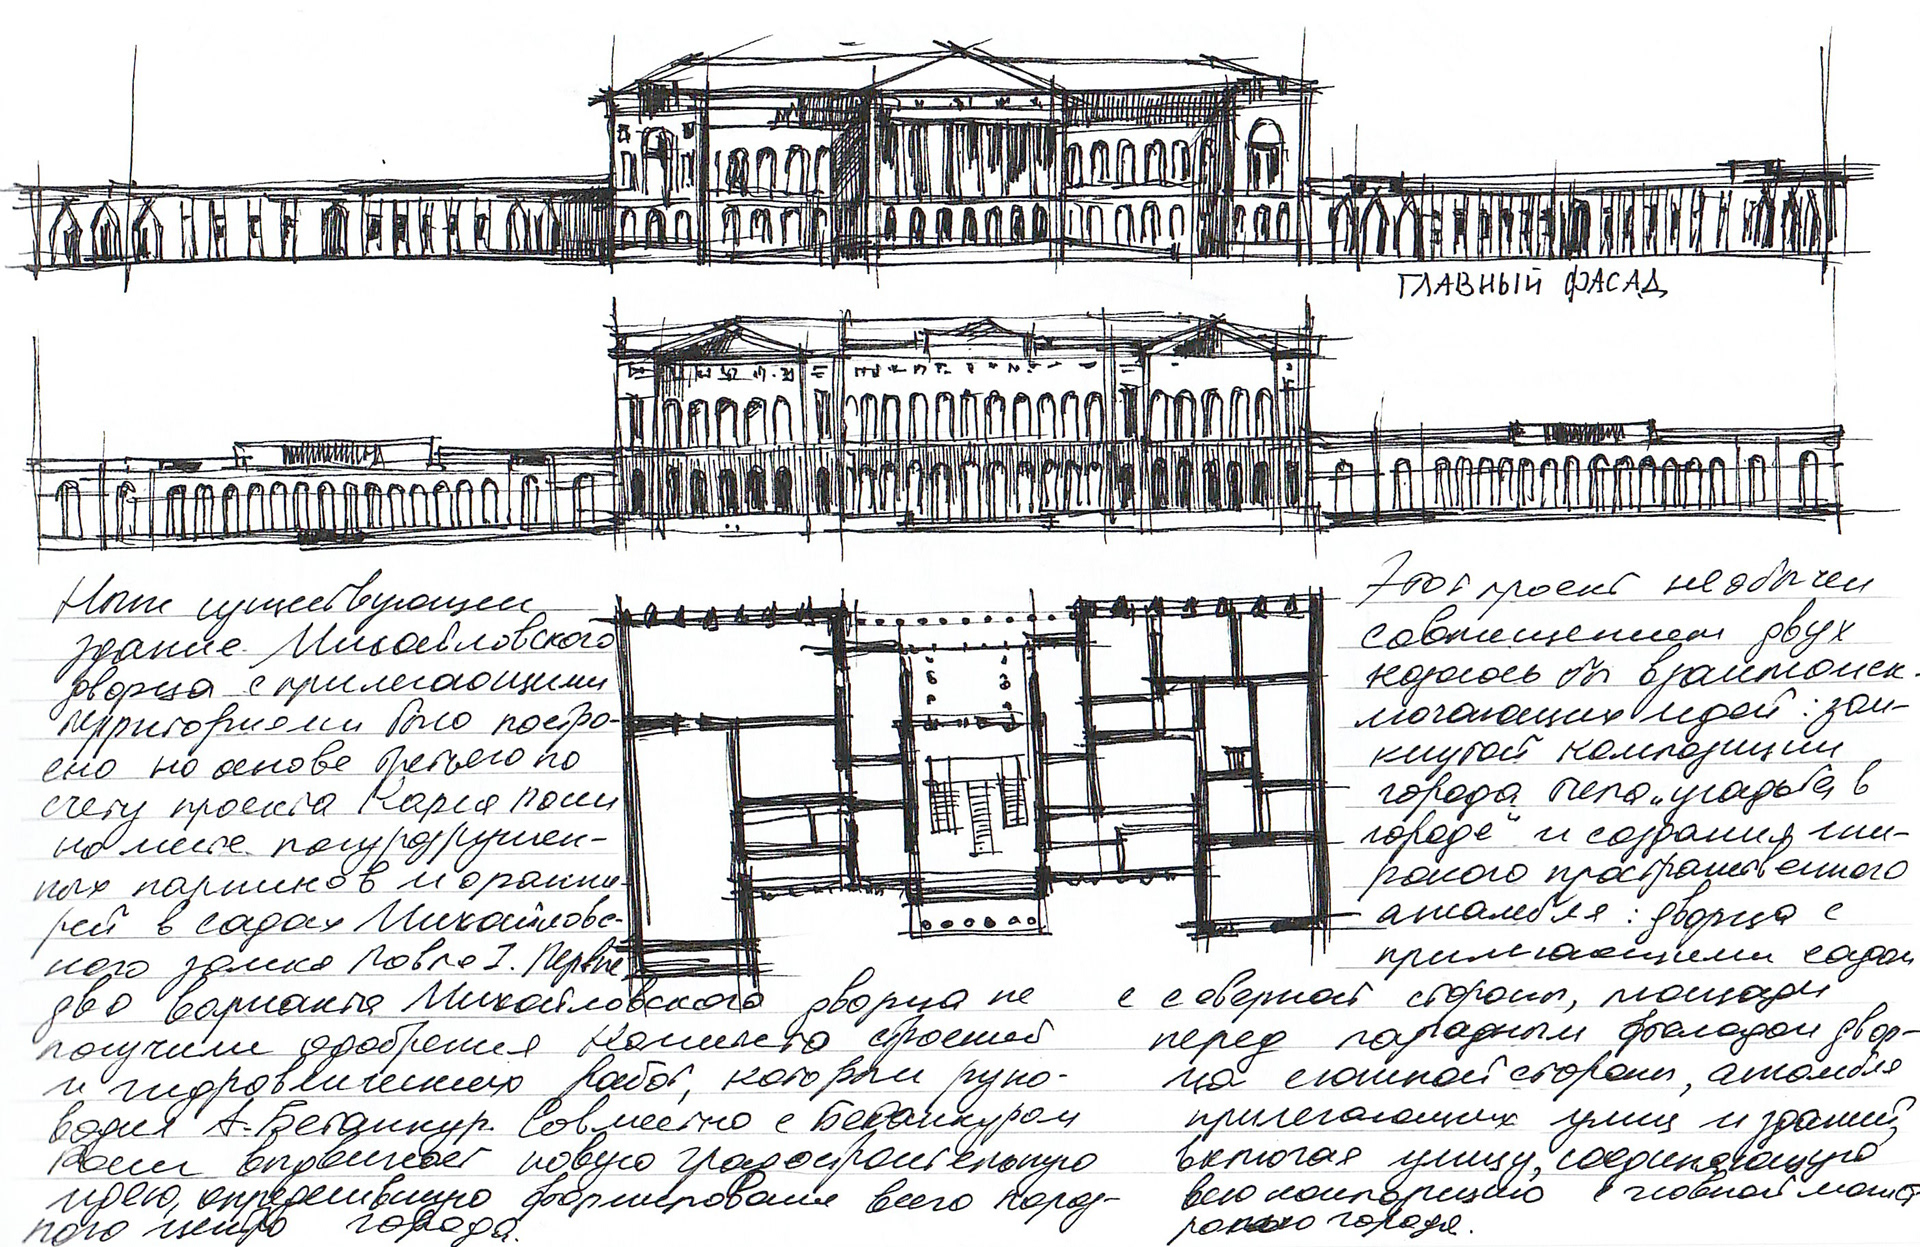 ГЛАВНЫЙ ФАСАД
Ныне существующее
здание Михайловского
дворца с прилегающими
территориями было постро-
ено на основе третьего по
счету проекта Карла Росси
на месте полуразрушен-
ных парников и оранже-
рей в садах Михайловс-
кого замка Павла I. Первые
два варианта Михайловского дворца не
получили одобрения Комитета строений
и гидравлических работ, которым руко-
водил А. Бетанкур. Совместно с Бетанкуром
Росси выдвигает новую градостроительную
идею, определившую формирование всего парад-
ного центра города.
Этот проект необычен
совмещением двух
казалось бы взаимоиск-
лючающих идей: зам-
кнутой композиции
города типа „усадьба в
городе" и создания ши-
рокого пространственного
ансамбля: дворца с
прилегающими садом
с северной стороны, площади
перед парадным фасадом двор-
ца с южной стороны, ансамбля
прилегающих улиц и зданий,
включая улицу, соединяющую
всю композицию с главной магист
ралью города.